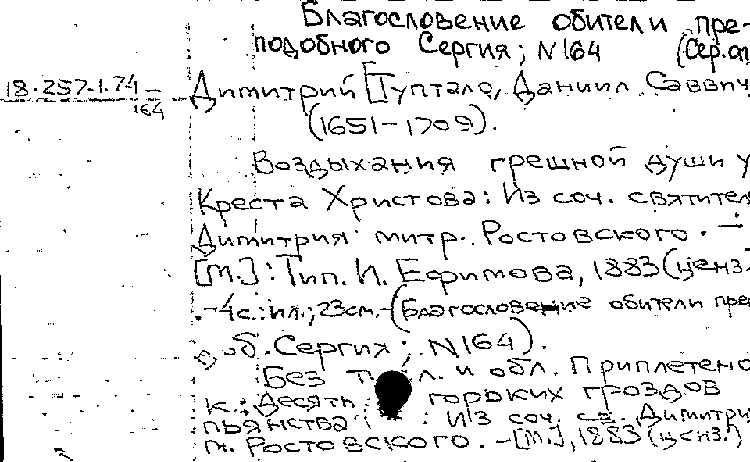 Благословение обители пре-
подобного Сергия; N164 (Сер. оп
18.257.1.74
164
Димитрий [Туптало, Даниил Саввич
(1651-1709).
Воздыхания грешной души у
Креста Христова: Из соч. святител
Димитрия митр. Ростовского. —
[М.]: Тип. И. Ефимова, 1883 (ценз.
.-4с.: ил.; 23см.-(Благословение обители пре
об. Сергия; N164).
Без т л. и обл. Приплетено
к.: Десять горьких гроздов
пьянства : Из соч. св. Димитри
м. Ростовского. -[М.], 1883 (ценз.)